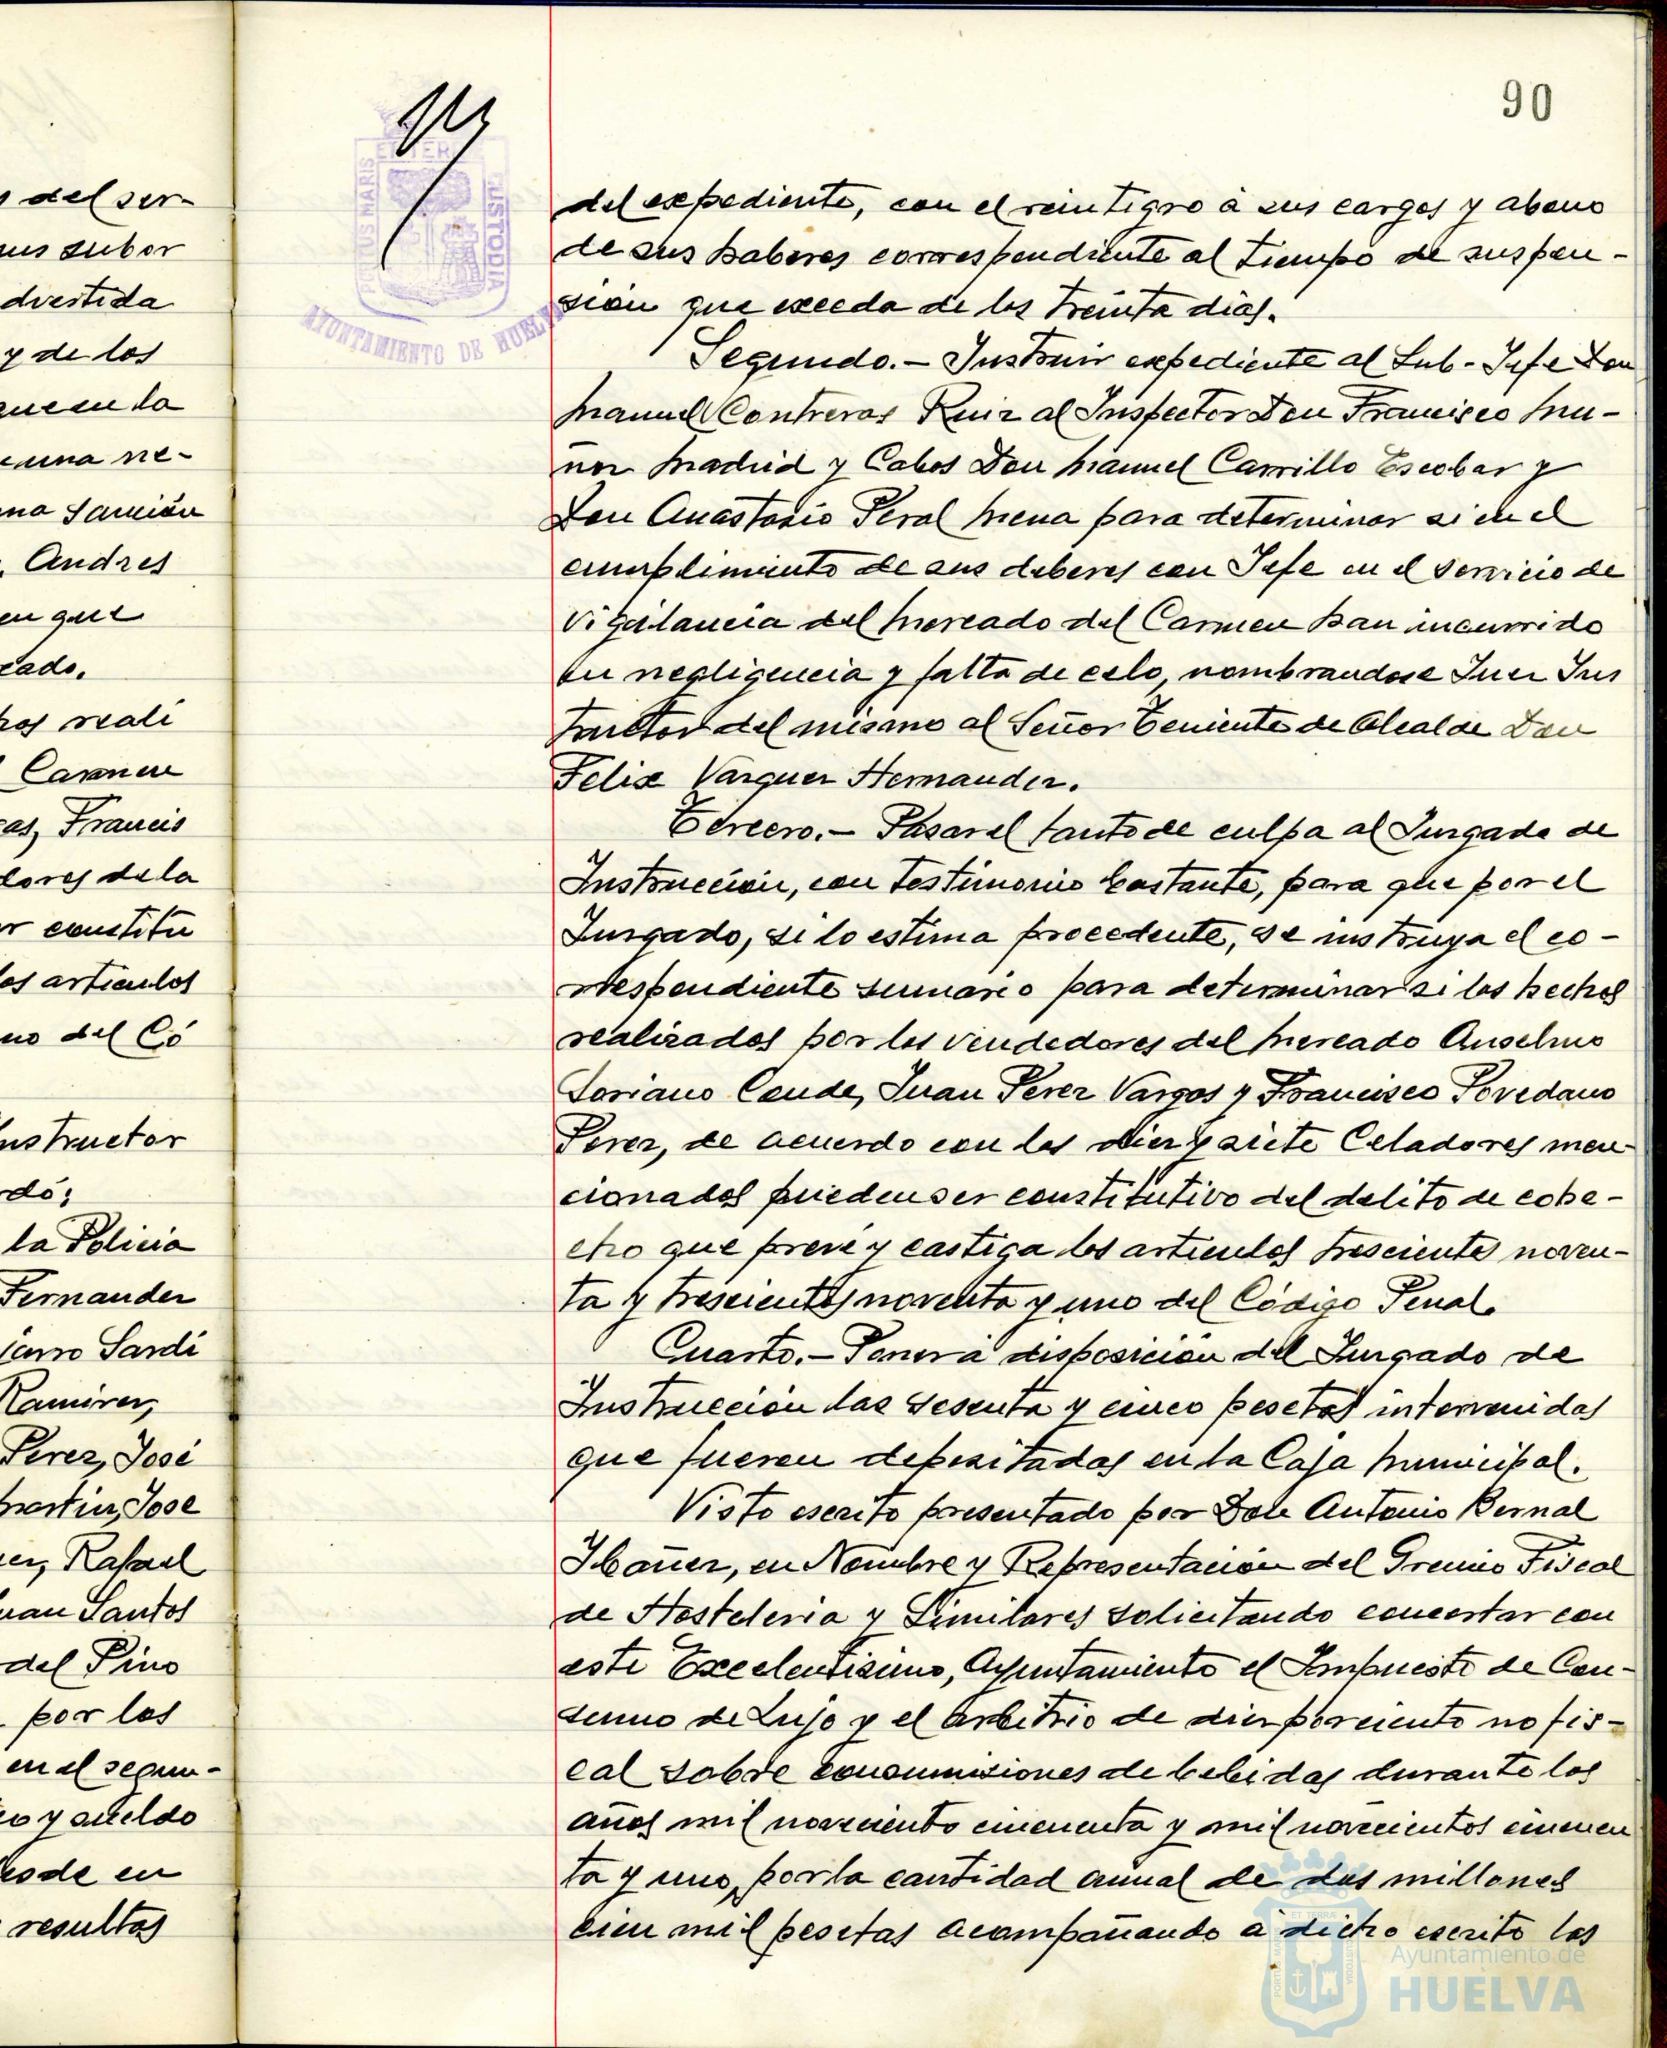 s del ser-
us subor
dvertida
y de los
que en la
e una ne-
na Sanción
Andres
en que
cado.
hos reali
Carmen
as, Francis
dores de la
r constitu
los articulos
no del Có
nstructor
rdó;
la Policia
Fernandez
jarro Sardi
Ramirez,
Perez, José
Martin, Jose
ez, Rafael
uan Santos
del Pino
por los
en el segun-
o y sueldo
esde en
resultas
90
PORTUS MARIS ET TERRE CUSTODIA
AYUNTAMIENTO DE HUELVA
del expediente, con el reintigro à sus cargos y abono
de sus haberes correspendiente al tiempo de suspen-
sión que exceda de los treinta dias.
Segundo.- Instruir expediente al Sub-Jefe Don
Manuel Contreras Ruiz al Inspector Don Francisco Mu-
ñoz Madrid y Cabos Don Manuel Carrillo Escobar y
Don Anastasio Peral Mena para determinar si en el
cumplimiento de sus deberes con Jefe en el servicio de
vigilancia del Mercado del Carmen han incurrido
en negligencia y falta de celo, nombrandose Juez Ins
tructor del mismo al Señor Teniente de Alcalde Don
Felix Vazquez Hernandez.
Tercero.- Pasar el tanto de culpa al Juzgado de
Instrucción, con testimonio bastante, para que por el
Juzgado, si lo estima procedente, se instruya el co-
rrespendiente sumario para determinar si los hechos
realizados por los vendedores del Mercado Anselmo
Soriano Conde, Juan Perez Vargas y Francisco Povedano
Perez, de acuerdo con los diez y siete Celadores men-
cionados pueden ser constitutivo del delito de cohe-
cho que prevé y castiga los articulos trescientos noven-
ta y trescientos noventa y uno del Código Penal.
Cuarto.- Poner a disposición del Juzgado de
Instrucción las sesenta y cinco pesetas intervenidas
que fueron depositadas en la Caja Municipal.
Visto escrito presentado por Don Antonio Bernal
Ibañez, en Nombre y Representación del Gremio Fiscal
de Hosteleria y Similares solicitando concertar con
este Excelentisimo, Ayuntamiento el Impuesto de Con-
sumo de Lujo y el arbitrio de diez por ciento no fis-
cal sobre consumisiones de bebidas durante los
años mil noveciento cincuenta y mil novecientos cincuen
ta y uno, por la cantidad anual de dos millones
cien mil pesetas acompañando a dicho escrito los
Ayuntamiento de
HUELVA